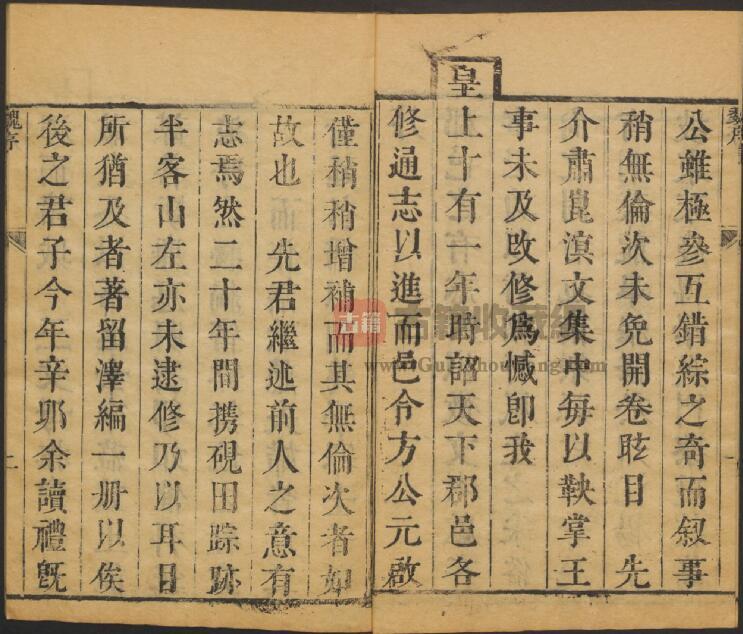 公雖極參互錯綜之奇而叙事
稍無倫次未免開卷眩目　先
介肅崑溟文集中每以鞅掌王
事未及改修爲憾卽我
皇上十有一年時詔天下郡邑各
修通志以進而邑令方公元啟
僅稍稍增補而其無倫次者如
故也而　先君繼述前人之意有
志焉然二十年間携硯田踪跡
半客山左亦未逮修乃以耳目
所猶及者著留澤編一册以俟
後之君子今年辛夘余讀禮旣
魏序
一
古籍
古籍收藏